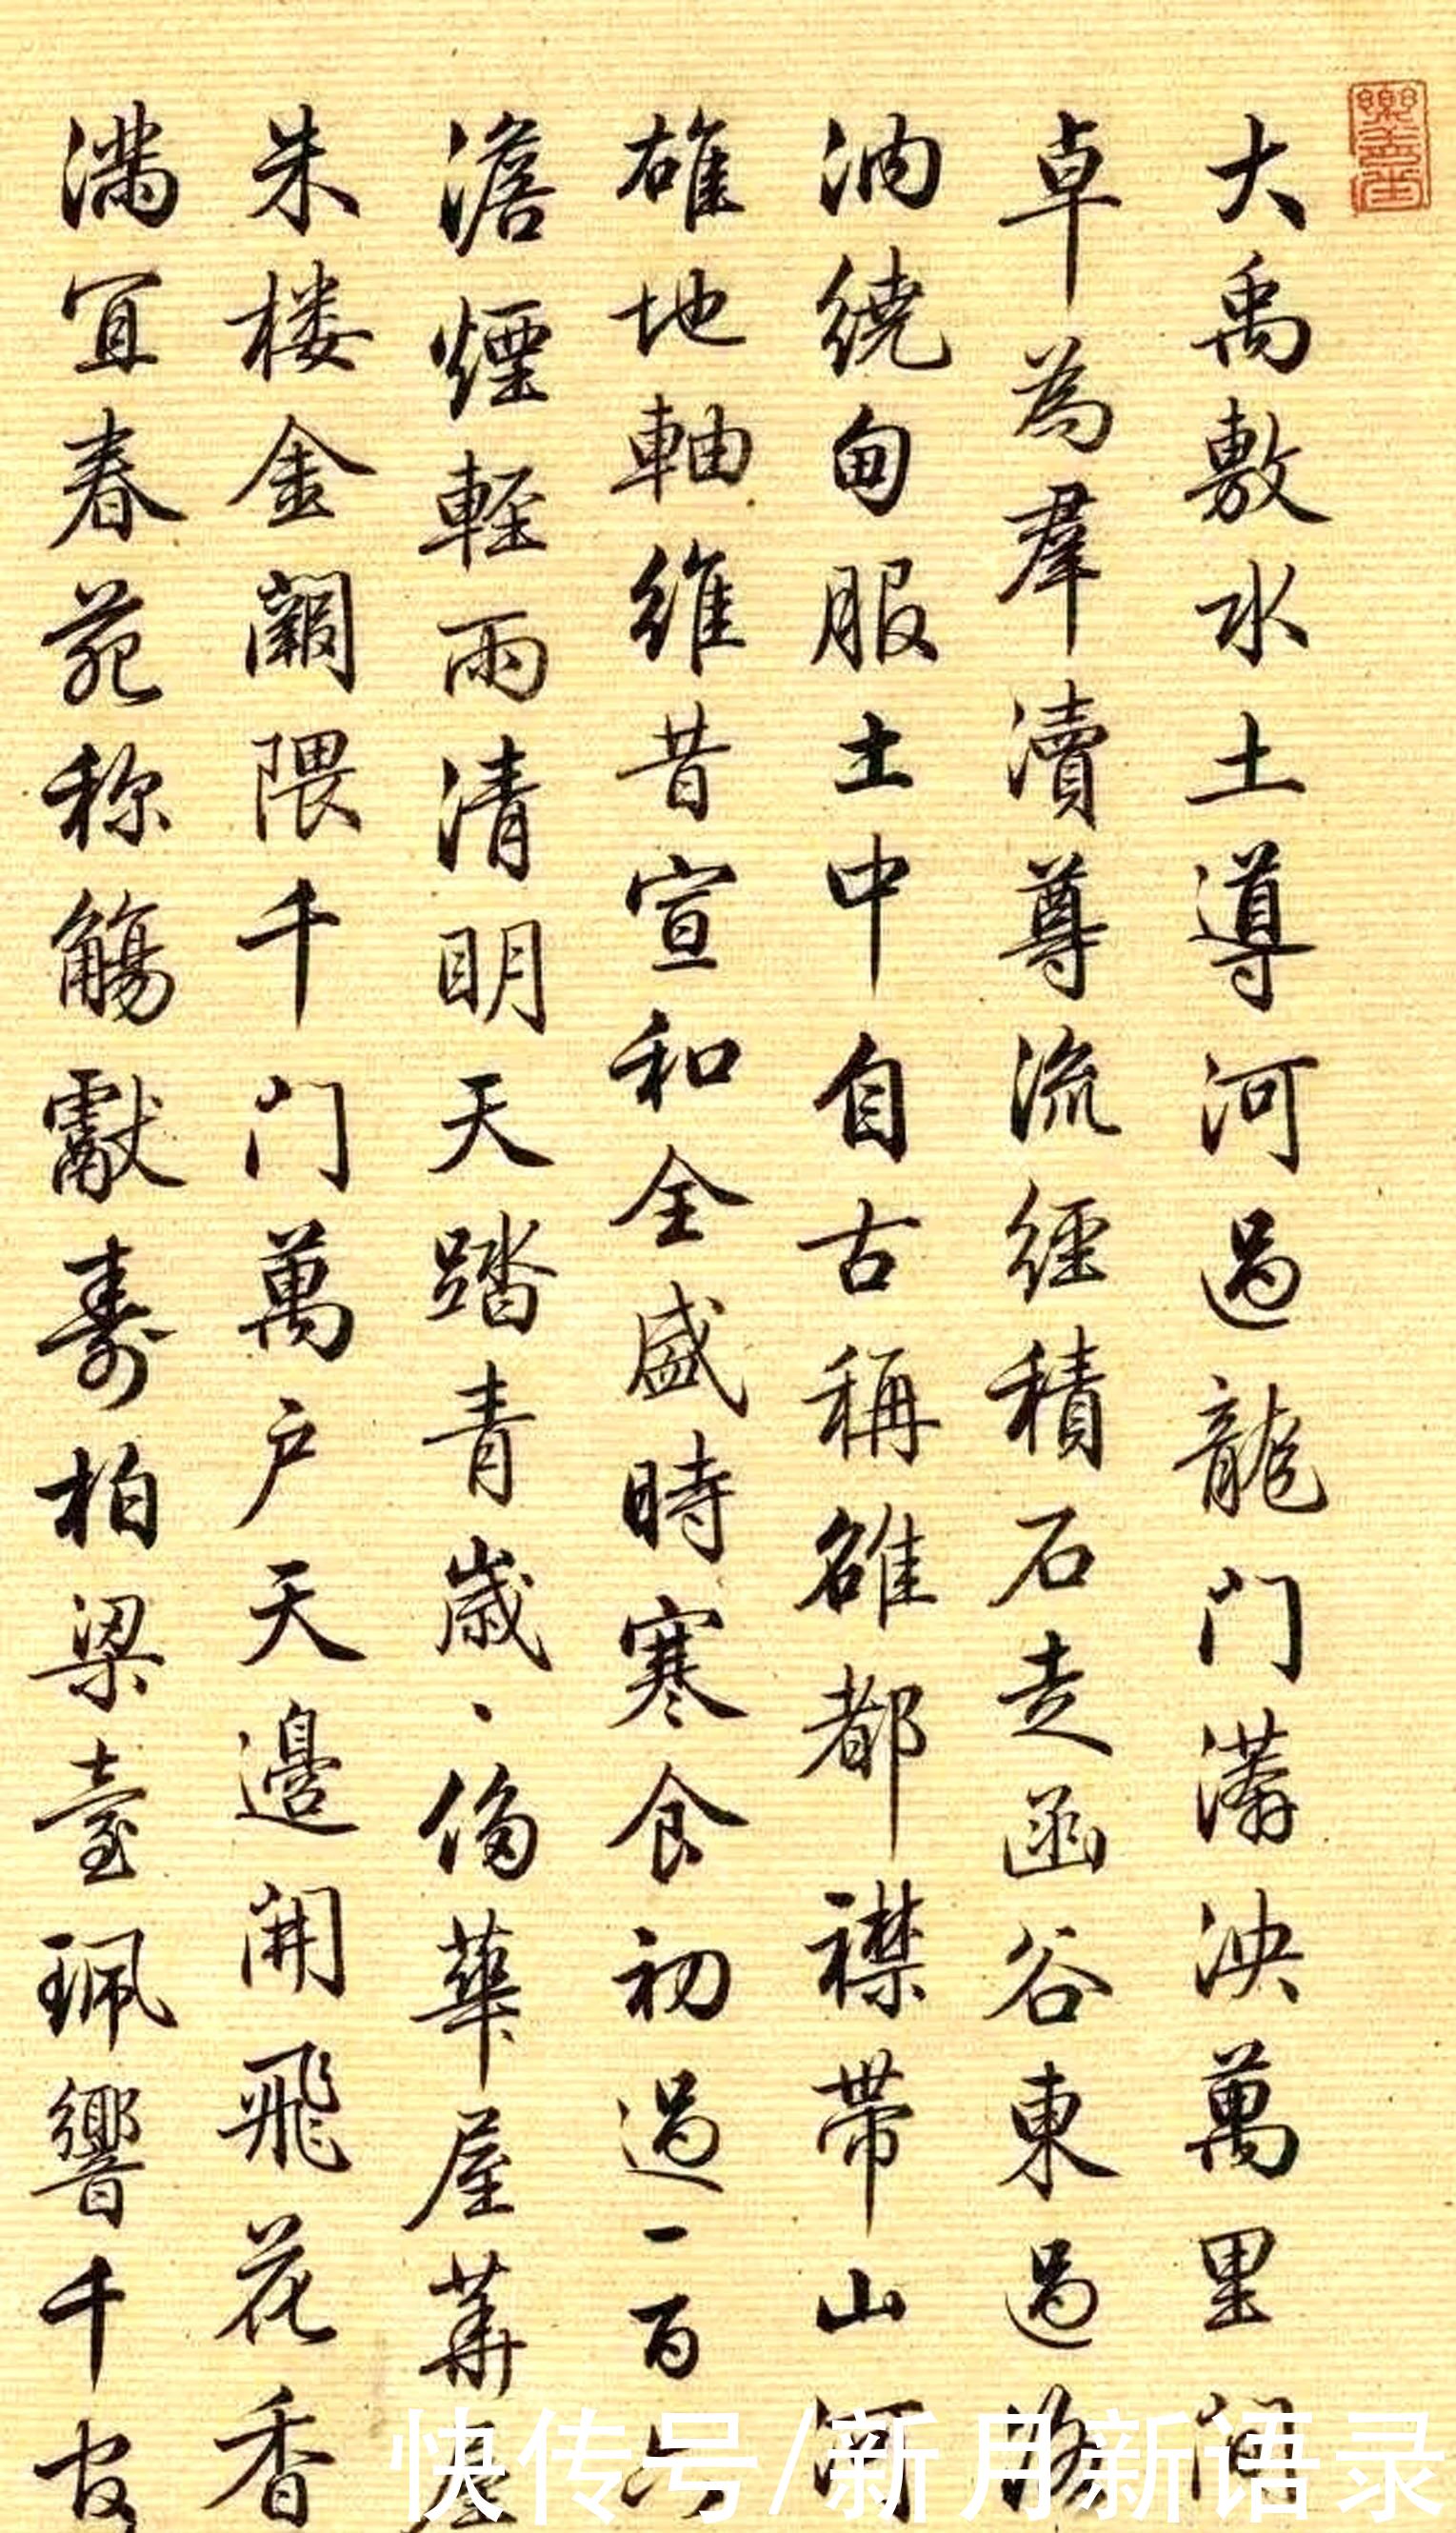 大禹敷水土導河過龍門漭泱萬里間
卓為羣瀆尊流經積石走函谷東過洛
汭繞甸服土中自古稱雒都襟帶山河
雄地軸維昔宣和全盛時寒食初過一百六
澹煙輕雨清明天踏青歲、侈華屋華屋
朱楼金闕隈千门萬户天邊開飛花香
滿宜春苑称觴獻壽柏梁臺珮響千官
快传号/新月新语录